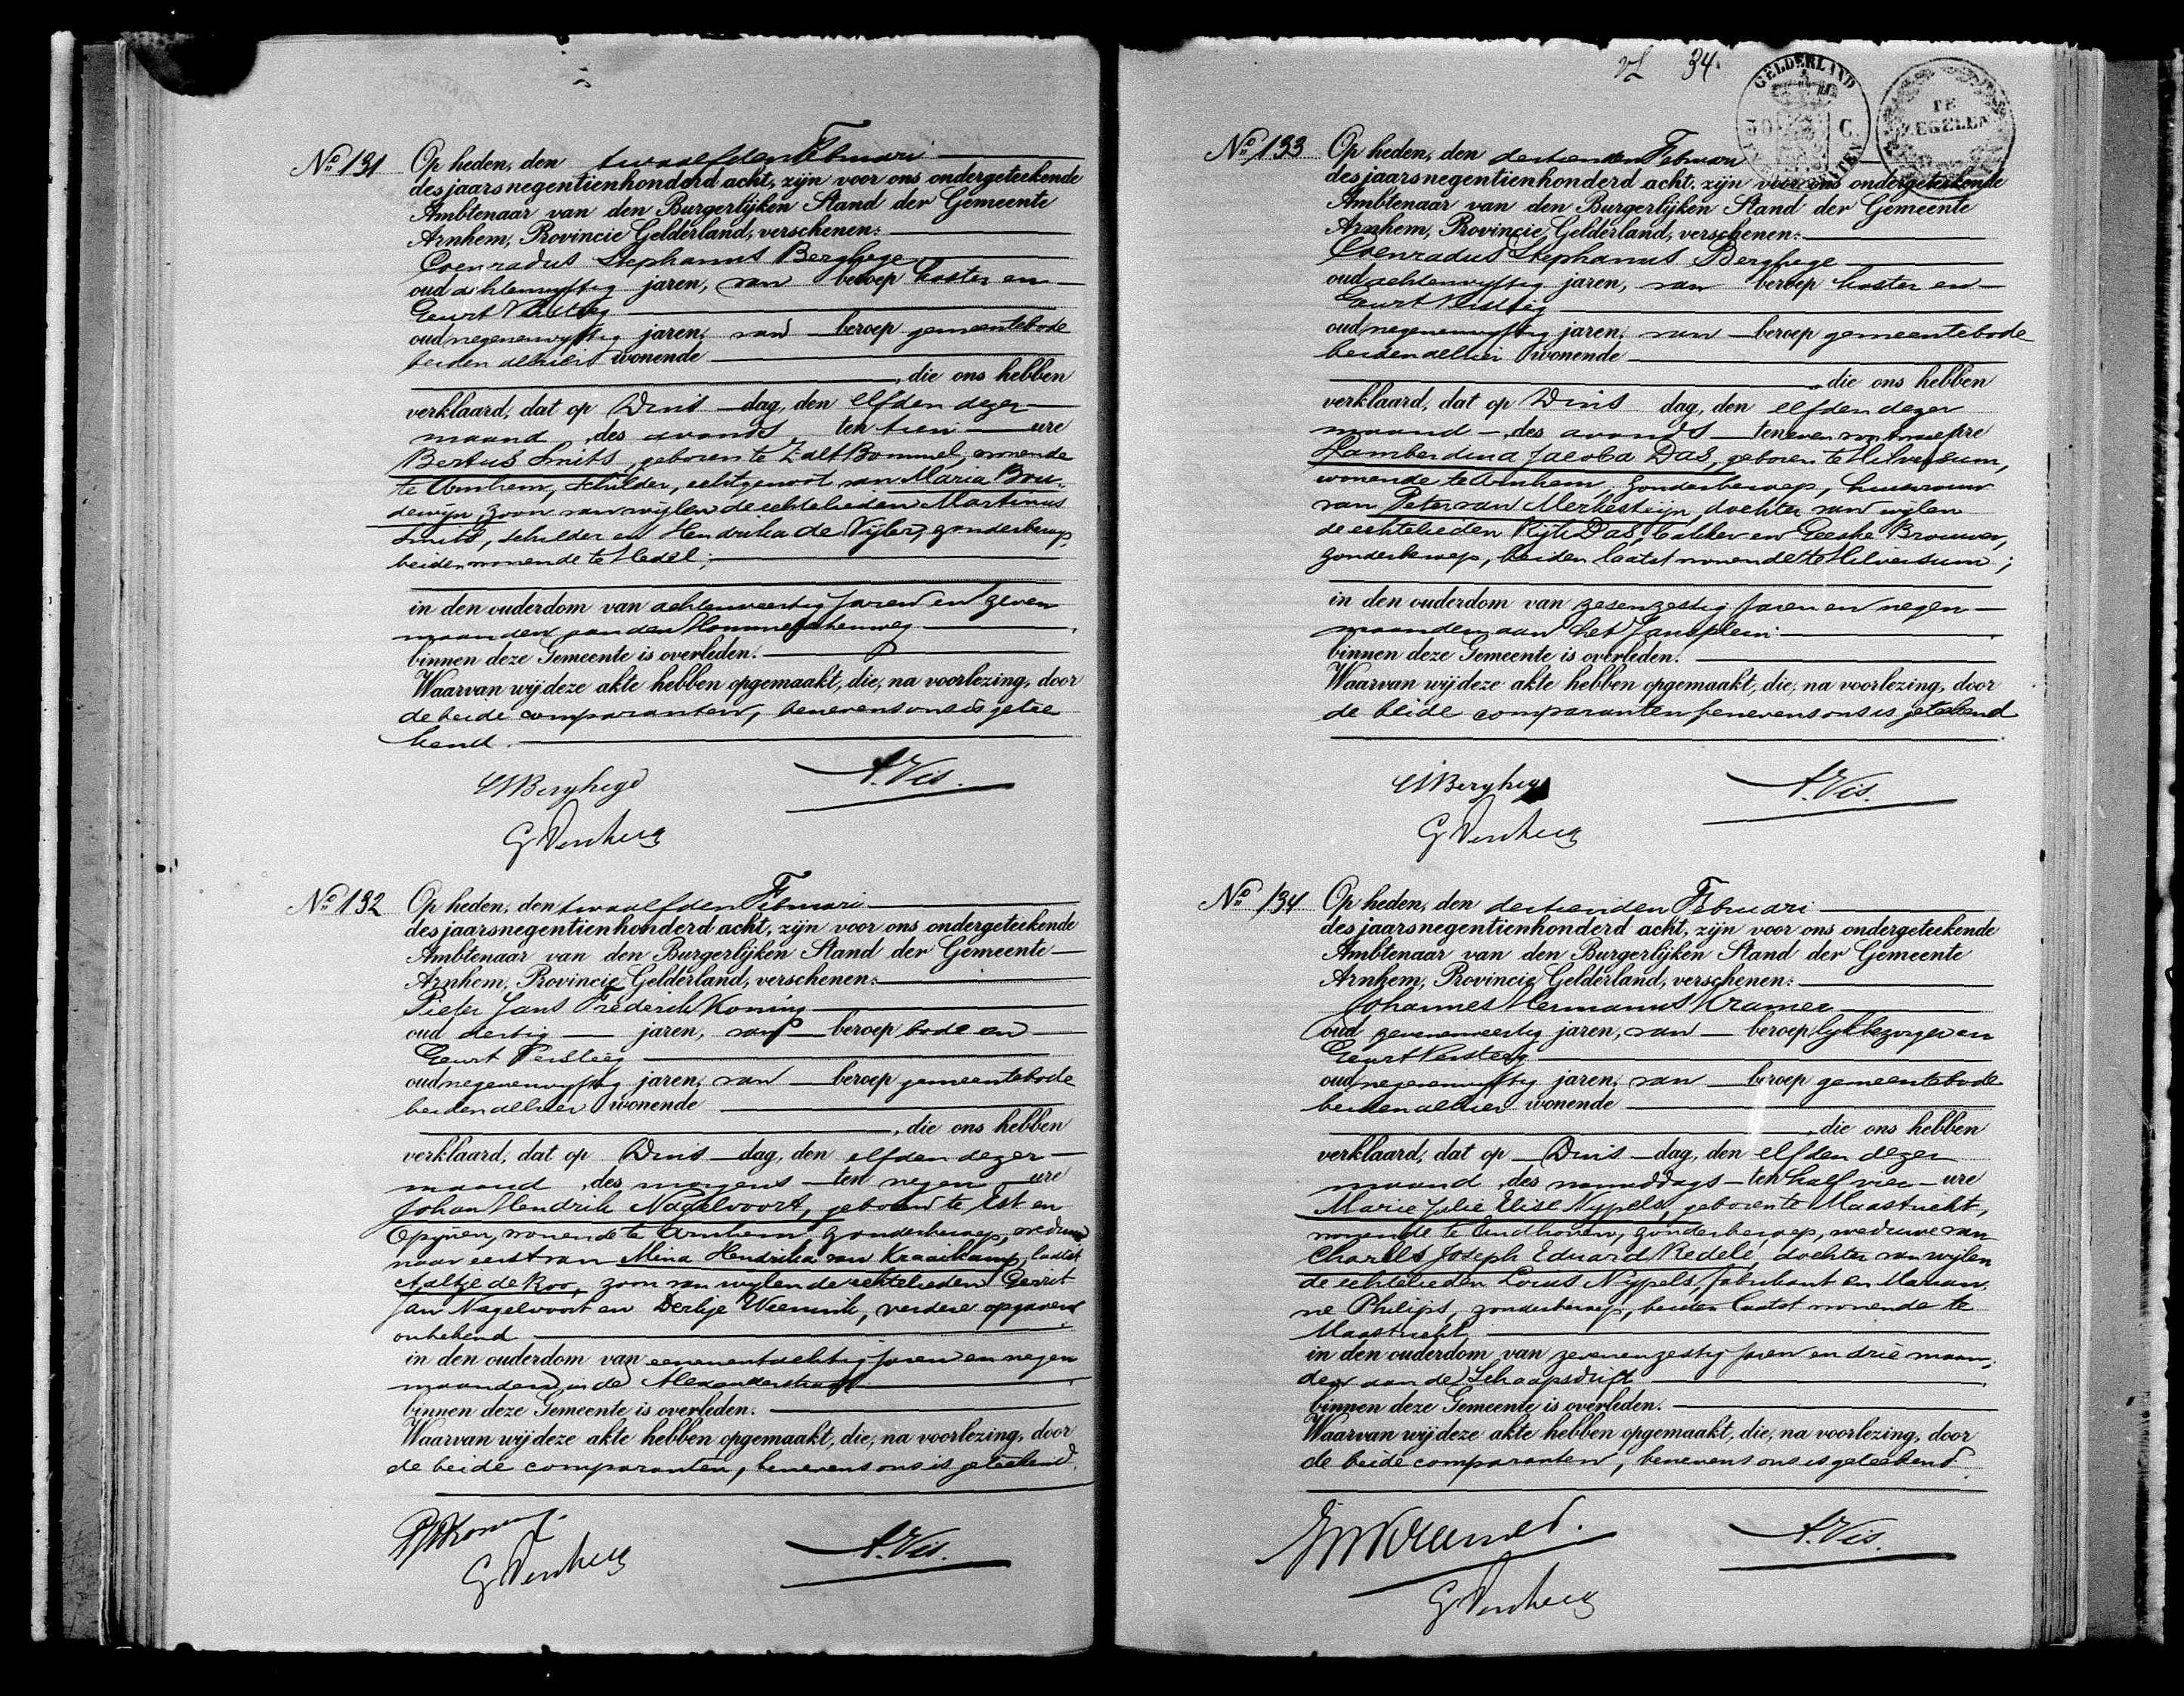 No 131 Op heden, den twaalfden Februari
des jaars negentienhonderd acht, zijn voor ons ondergeteekende
Ambtenaar van den Burgerlijken Stand der Gemeente
Arnhem, Provincie Gelderland, verschenen:
Coenradus Stephanus Berghege
oud achtenvyftig jaren, van beroep koster en
Geurt Versteeg
oud negenenvyftig jaren, van beroep gemeentebode
beiden alhier wonende
, die ons hebben
verklaard, dat op Dins dag, den elfden dezer
maand, des avonds ten tien ure
Bertus Smits, geboren te Zalt Bommel, wonende
te Arnhem, schilder, echtgenoot van Maria Bou-
dewijn, zoon van wijlen de echtelieden Martinus
Smits, schilder en Hendrika de Vijler, zonder beroep,
beiden wonende te Hedel;
in den ouderdom van achtenveertig jaren en zeven
maanden aan den Hommelscheweg
binnen deze Gemeente is overleden.
Waarvan wij deze akte hebben opgemaakt, die, na voorlezing, door
de beide comparanten, benevens ons is getee
kend.
CSBerghege A. Vis.
G Versteeg
No 132 Op heden, den twaalfden Februari
des jaars negentienhonderd acht, zijn voor ons ondergeteekende
Ambtenaar van den Burgerlijken Stand der Gemeente
Arnhem, Provincie Gelderland, verschenen:
Pieter Jans Frederik Koning
oud dertig jaren, van beroep bode en
Geurt Versteeg
oud negenenvyftig jaren, van beroep gemeentebode
beiden alhier wonende
, die ons hebben
verklaard, dat op Dins dag, den elfden dezer
maand, des morgens ten negen ure
Johan Hendrik Nagelvoort, geboren te Est en
Opijnen, wonende te Arnhem zonder beroep, weduw
naar eerst van Mina Hendrika van Kraaikamp, laatst
Aaltje de Roo, zoon van wylen de echtelieden Gerrit
Jan Nagelvoort en Derkje Weenink, verdere opgaven
onbekend
in den ouderdom van eenentachtig jaren en negen
maanden in de Alexanderstraat
binnen deze Gemeente is overleden.
Waarvan wij deze akte hebben opgemaakt, die, na voorlezing, door
de beide comparanten, benevens ons is geteekend.
PJFKoning. A. Vis.
G Versteeg
34.
GELDERLAND
50 C.
TE
ZEGELEN
No 133 Op heden, den dertienden Februari
des jaars negentienhonderd acht, zijn voor ons ondergeteekende
Ambtenaar van den Burgerlijken Stand der Gemeente
Arnhem, Provincie Gelderland, verschenen:
Coenradus Stephanus Berghege
oud achtenvyftig jaren, van beroep koster en
Geurt Versteeg
oud negenenvyftig jaren, van beroep gemeentebode
beiden alhier wonende
, die ons hebben
verklaard, dat op Dins dag, den elfden dezer
maand, des avonds ten even voor twaalf ure
Lamberdina Jacoba Das, geboren te Hilversum,
wonende te Arnhem zonder beroep, huisvrouw
van Peter van Merkesteijn, dochter van wylen
de echtelieden Rijk Das, bakker en Geeske Brouwer,
zonder beroep, beiden laatst wonende te Hilversum;
in den ouderdom van zesenzestig jaren en negen
maanden aan het Jansplein
binnen deze Gemeente is overleden.
Waarvan wij deze akte hebben opgemaakt, die, na voorlezing, door
de beide comparanten benevens ons is geteekend
CSBerghege A. Vis.
G Versteeg
No 134 Op heden, den dertienden Februari
des jaars negentienhonderd acht, zijn voor ons ondergeteekende
Ambtenaar van den Burgerlijken Stand der Gemeente
Arnhem, Provincie Gelderland, verschenen:
Johannes Hermanus Kramer
oud zevenenveertig jaren, van beroep lykbezorger en
Geurt Versteeg
oud negenenvyftig jaren, van beroep gemeentebode
beiden alhier wonende
, die ons hebben
verklaard, dat op Dins dag, den elfden dezer
maand, des namiddags ten half vier ure
Marie Julie Elise Nypels, geboren te Maastricht,
wonende te Eindhoven, zonder beroep, weduwe van
Charles Joseph Eduard Redelé, dochter van wylen
de echtelieden Louis Nypels, fabrikant en Marian-
ne Philips, zonder beroep, beiden laatst wonende te
Maastricht,
in den ouderdom van zevenenzestig jaren en drie maan-
den aan de Schaapsdrift
binnen deze Gemeente is overleden.
Waarvan wij deze akte hebben opgemaakt, die, na voorlezing, door
de beide comparanten, benevens ons is geteekend.
JHKramer. A. Vis.
G Versteeg